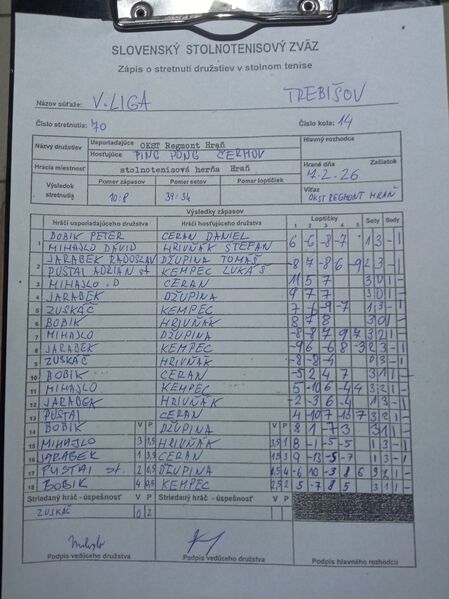 SLOVENSKÝ STOLNOTENISOVÝ ZVÄZ
Zápis o stretnutí družstiev v stolnom tenise
Názov súťaže: V. LIGA TREBIŠOV
Číslo stretnutia: 70 Číslo kola: 14
Názvy družstiev Usporiadajúce OKST Regmont Hraň Hlavný rozhodca
Hosťujúce PING PONG ČERHOV
Hracia miestnosť stolnotenisová herňa Hraň Hrané dňa 7.2.26 Začiatok
Výsledok stretnutia Pomer zápasov 10:8 Pomer setov 39:34 Pomer loptičiek Víťaz OKST REGMONT HRAŇ
Výsledky zápasov
Hráči usporiadajúceho družstva Hráči hosťujúceho družstva Loptičky 1 2 3 4 5 Sety Body
1 BOBIK PETER CERAN DANIEL 6 -6 -8 -7 1 3 - 1
MIHAJLO DÁVID HRIVŇÁK ŠTEFAN
2 JARABEK RADOSLAV DŽUPINA TOMÁŠ -8 7 -8 6 -9 2 3 - 1
PUSTAI ADRIAN st. KEMPEC LUKÁŠ
3 MIHAJLO .D CERAN 11 5 7 3 0 1 -
4 JARABEK DŽUPINA 9 7 7 3 0 1 -
5 ZUSKÁČ KEMPEC 1 3 - 1
6 BOBIK HRIVŇÁK 8 7 8 3 0 1 -
7 MIHAJLO DŽUPINA -8 -8 7 9 7 3 2 1 -
8 JARABEK KEMPEC -9 6 -6 8 -3 2 3 - 1
9 ZUSKÁČ HRIVŇÁK -8 -8 -4 0 3 - 1
10 BOBIK CERAN -5 2 4 7 3 1 1 -
11 MIHAJLO KEMPEC 5 -10 6 -4 4 3 2 1 -
12 JARABEK HRIVŇÁK -2 -3 6 -4 1 3 - 1
13 PUSTAI CERAN 3 2 1 -
14 BOBIK V P DŽUPINA V P 8 1 -7 3 3 1 1 -
15 MIHAJLO 3 1,5 HRIVŇÁK 8 -1 -5 -5 1 3 - 1
16 JARABEK 1 3,5 CERAN 9 -13 -5 -7 1 3 - 1
17 PUSTAI st. 2 0,5 DŽUPINA -6 10 -3 8 6 3 2 1 -
18 BOBIK 4 0,5 KEMPEC 5 -7 8 5 3 1 1 -
Striedaný hráč - úspešnosť V P Striedaný hráč - úspešnosť V P
ZUSKÁČ 0 2
Podpis vedúceho družstva Podpis vedúceho družstva Podpis hlavného rozhodcu